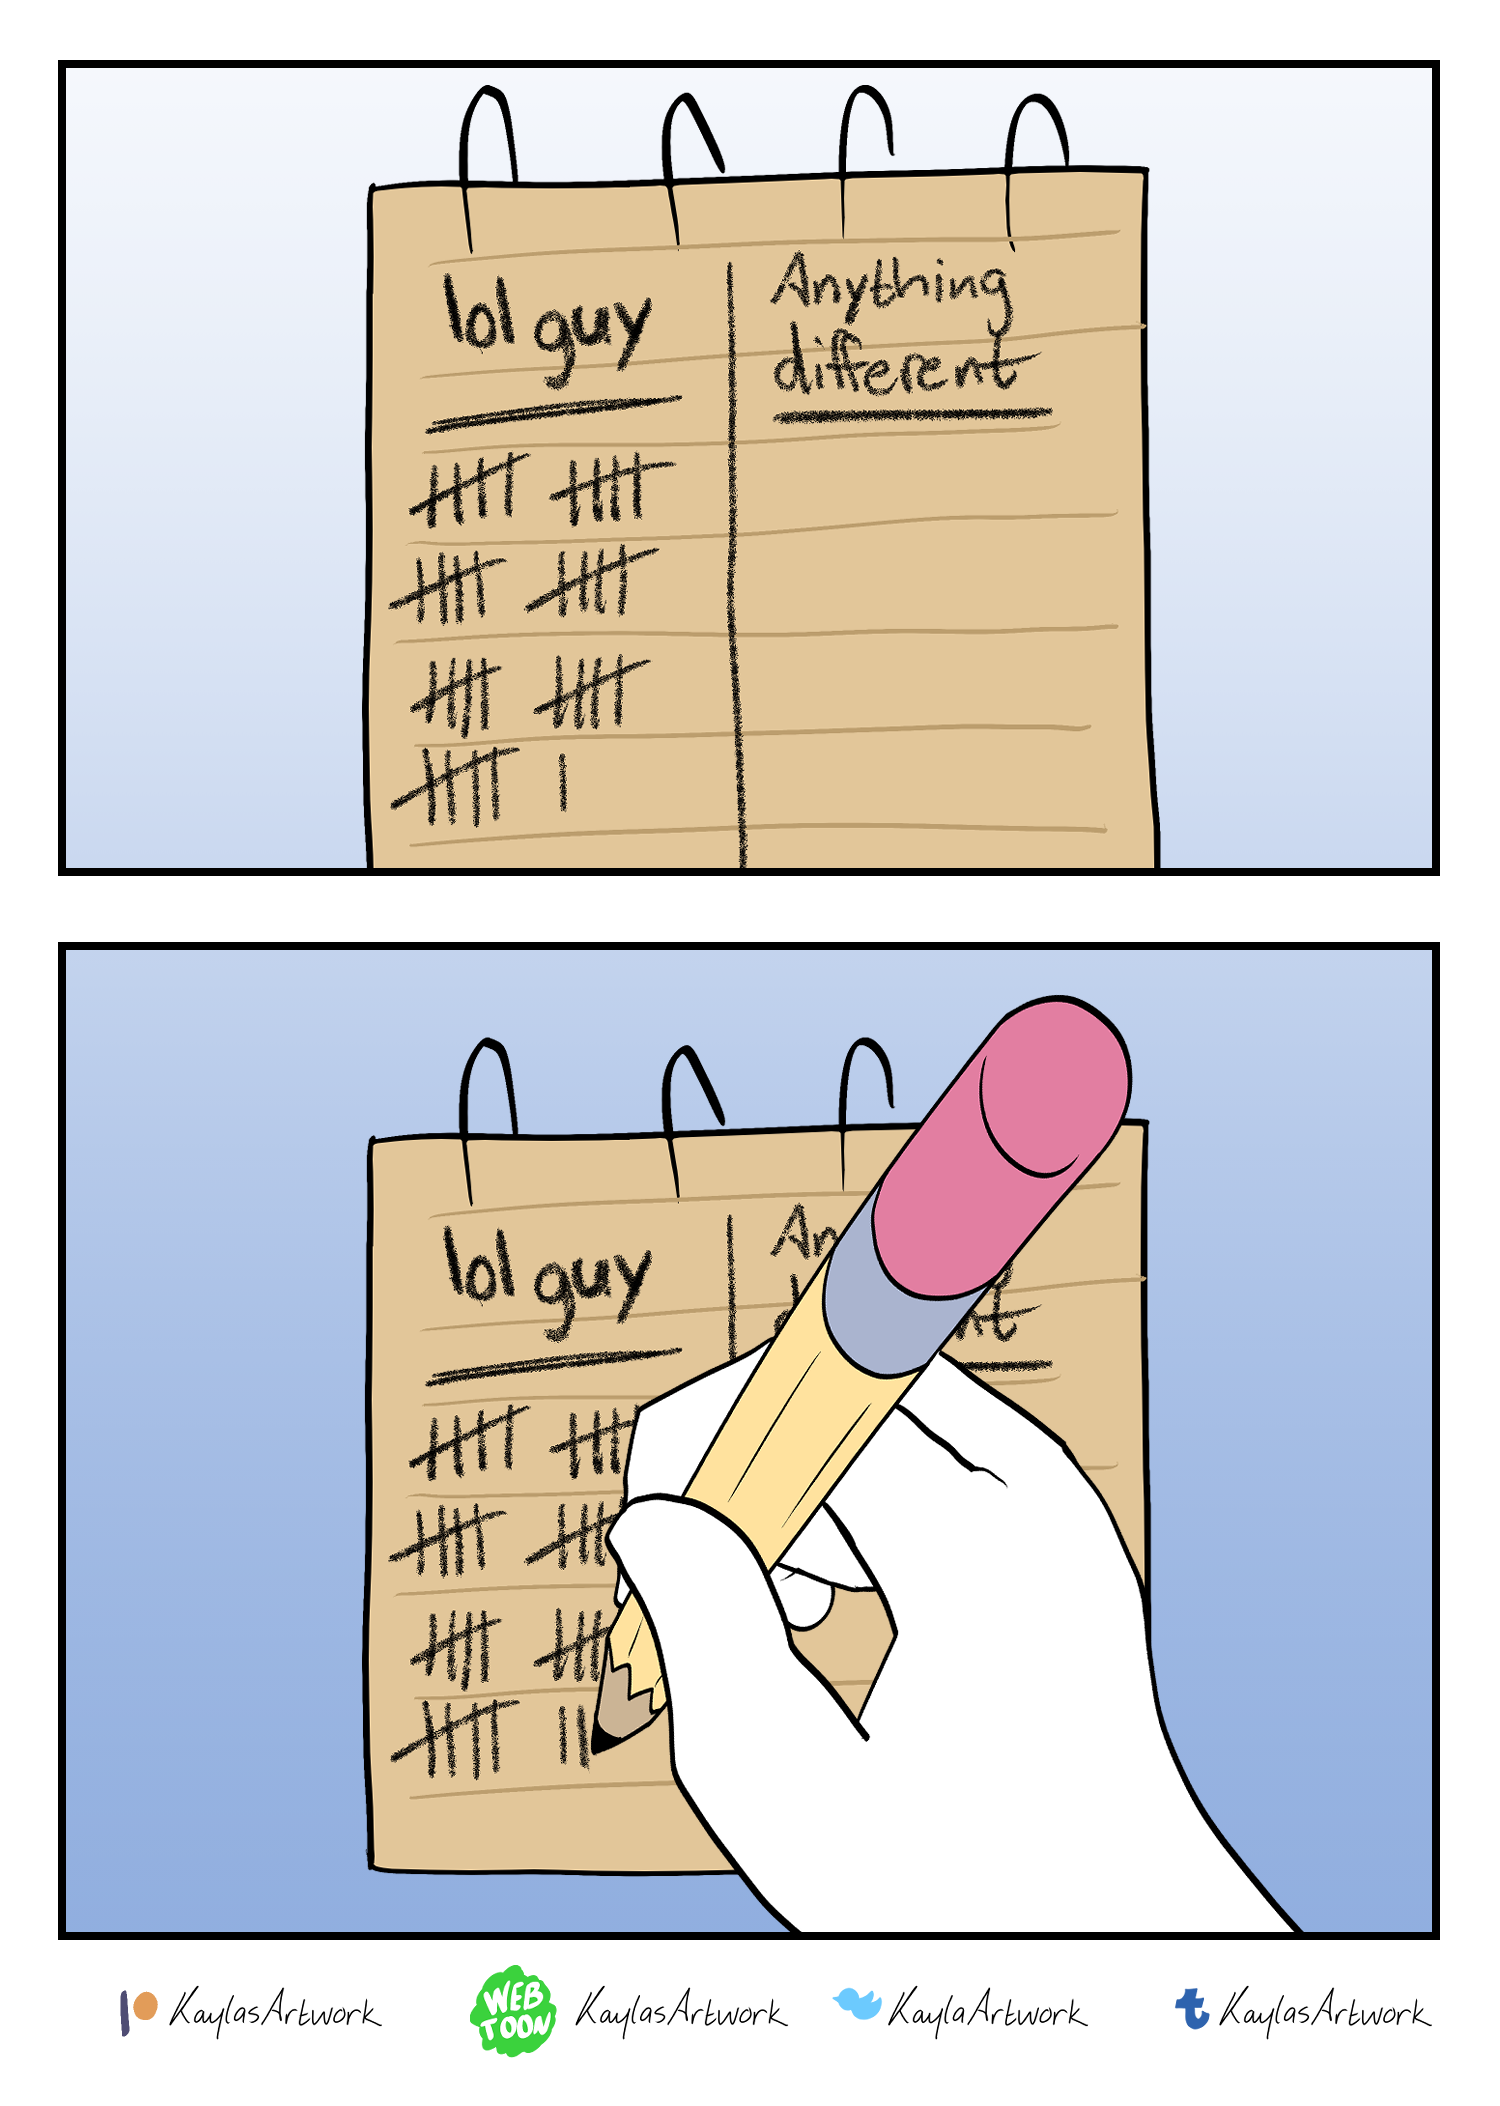 lol guy
Anything
different
lol guy
An
nt
KaylasArtwork
WEB
TOON
KaylasArtwork
KaylaArtwork
t
KaylasArtwork